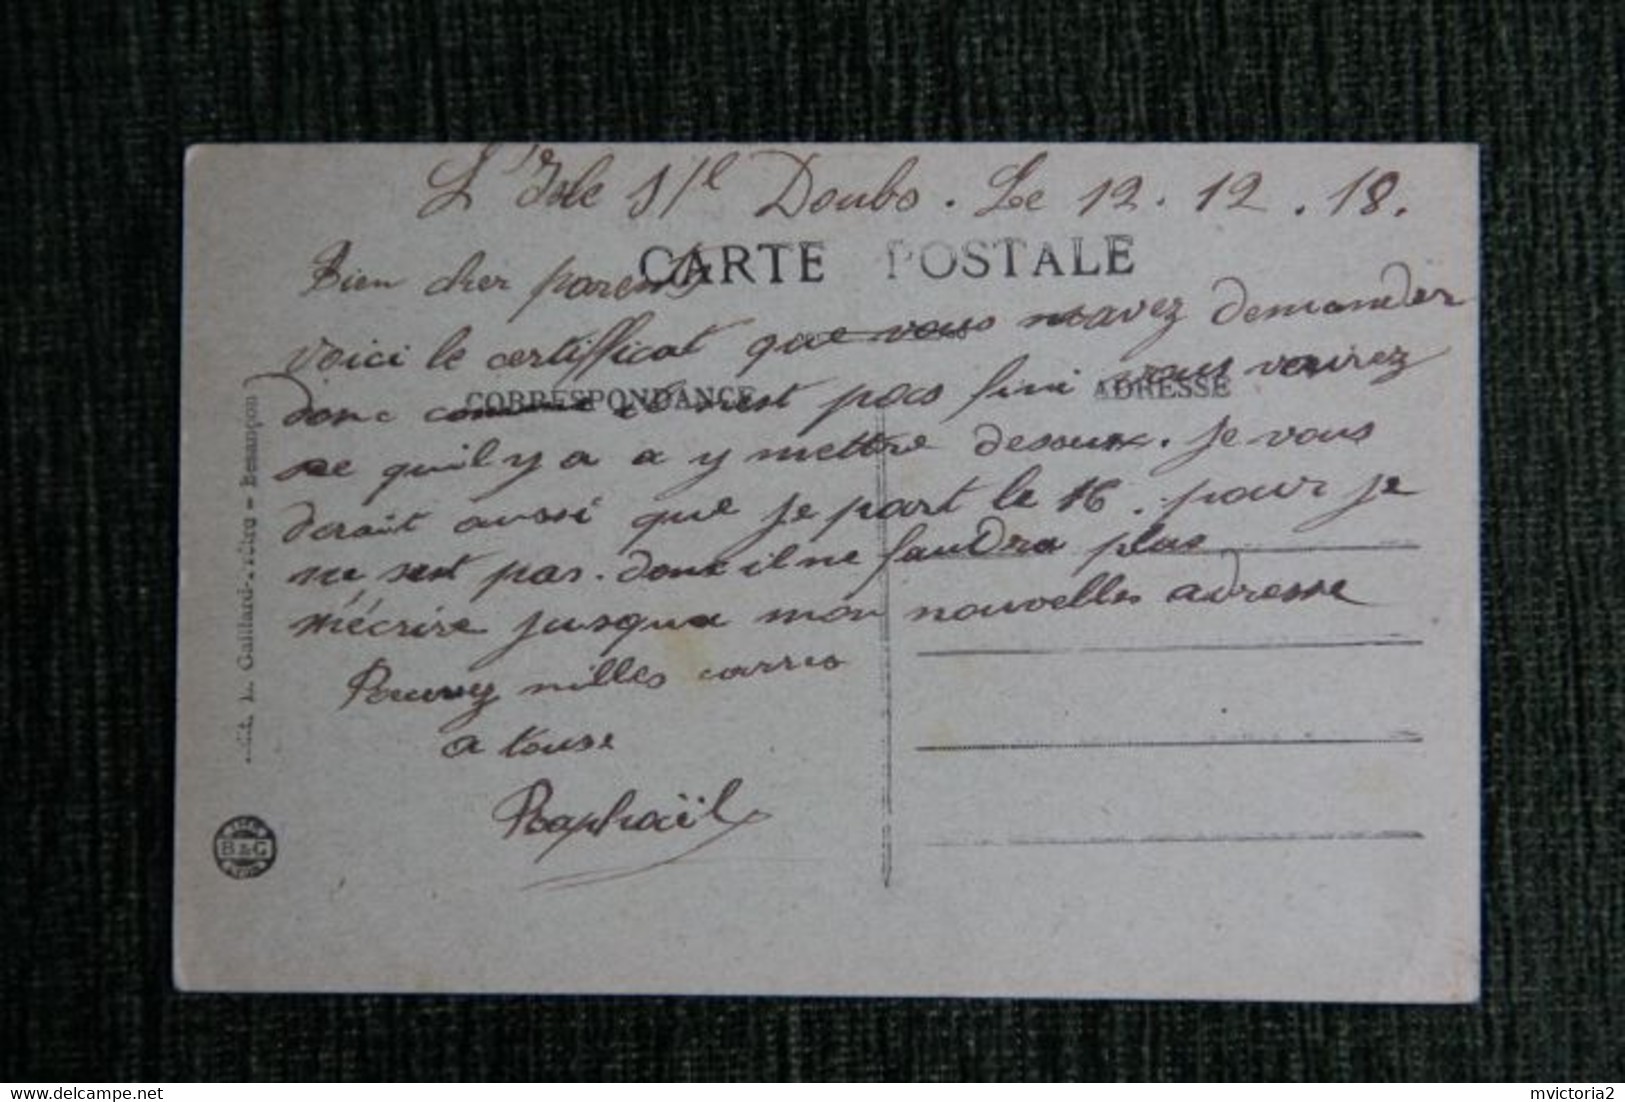 L'Isle s/le Doubs. Le 12.12.18.
CARTE POSTALE
Bien cher parents
voici le certifficat que vous m'avez demander
CORRESPONDANCE
ADRESSE
donc comme ce n'est pas fini vous verirez
se qu'il y a a y mettre desoux. Je vous
derait aussi que je part le 16. pour je
ne sest pas. donc il ne faudra plus
m'écrire jusqua mon nouvelles adresse
Recevez milles carres
a touse
Raphaël
Edit. L. Gaillard-Prêtre - Besançon
IMP.
B & G
LYON
mvictoria2